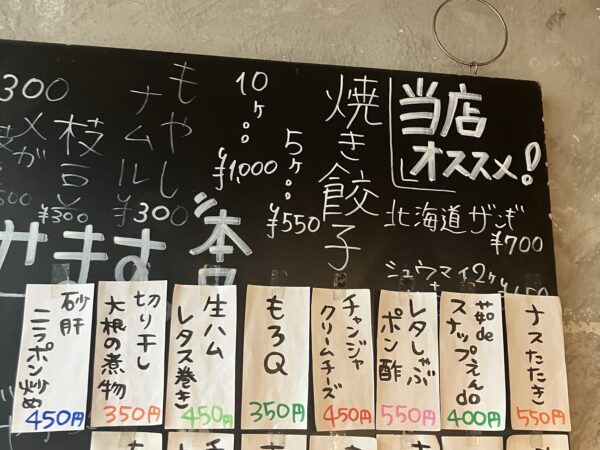 当店
オススメ!
北海道ザンギ
¥700
シュウマイ2ヶ
焼き餃子
5ヶ…
¥550
10ヶ…
¥1,000
もやし
ナムル
¥300
枝豆
¥300
300
ます
ナスたたき
550円
茹de
スナップえんdo
400円
レタしゃぶ
ポン酢
550円
チャンジャ
クリームチーズ
450円
もろQ
350円
生ハム
レタス巻き
450円
切り干し
大根の煮物
350円
砂肝
ニラポン炒め
450円